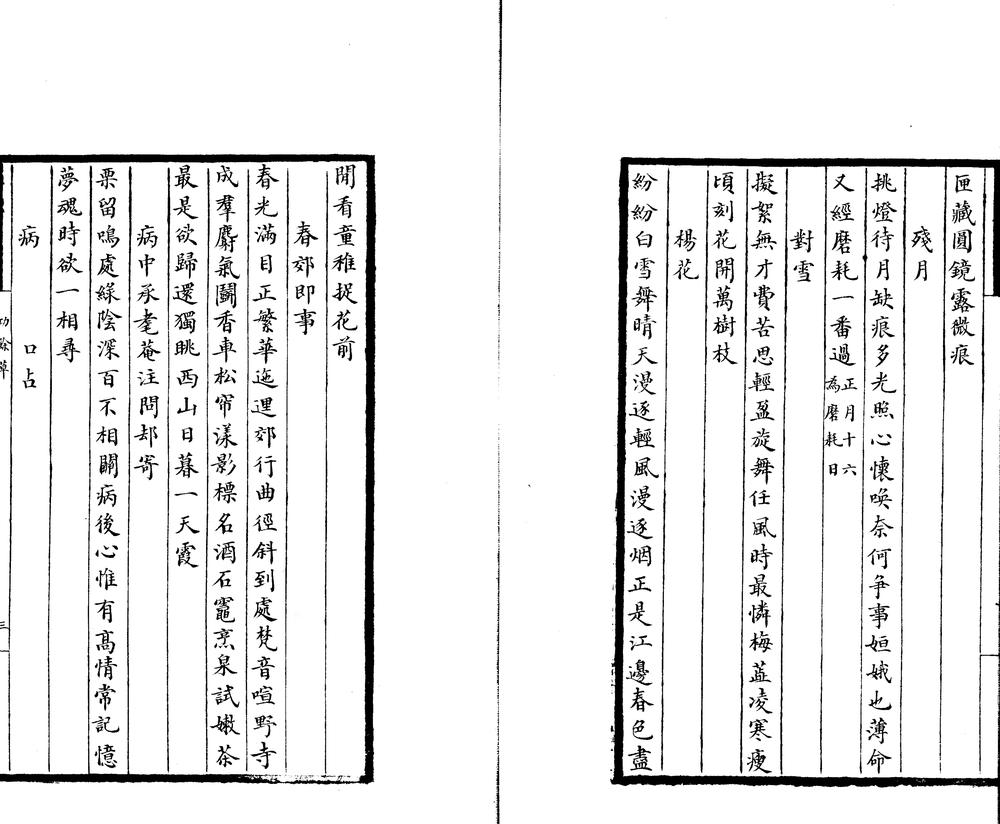 匣藏圓鏡露微痕
殘月
挑燈待月缺痕多光照心懷喚奈何爭事姮娥也薄命
又經磨耗一番過正月十六為磨耗日
對雪
擬絮無才費苦思輕盈旋舞任風時最憐梅蕋凌寒瘦
頃刻花開萬樹枝
楊花
紛紛白雪舞晴天漫逐輕風漫逐烟正是江邊春色盡
閒看童稚捉花前
春郊即事
春光滿目正繁華迤逦郊行曲徑斜到處梵音喧野寺
成羣麝氣鬭香車松帘漾影標名酒石竈烹泉試嫩茶
最是欲歸還獨眺西山日暮一天霞
病中承耄菴注問却寄
栗留鳴處綠陰深百不相關病後心惟有高情常記憶
夢魂時欲一相尋
病 口占
功餘草
三